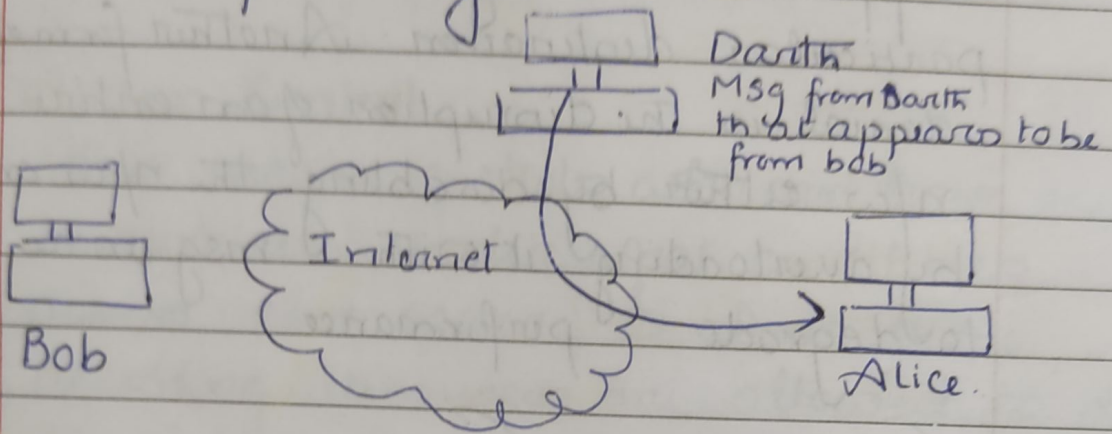 Darth
Msg from Darth
that appears to be
from bob
Internet
Bob
Alice.